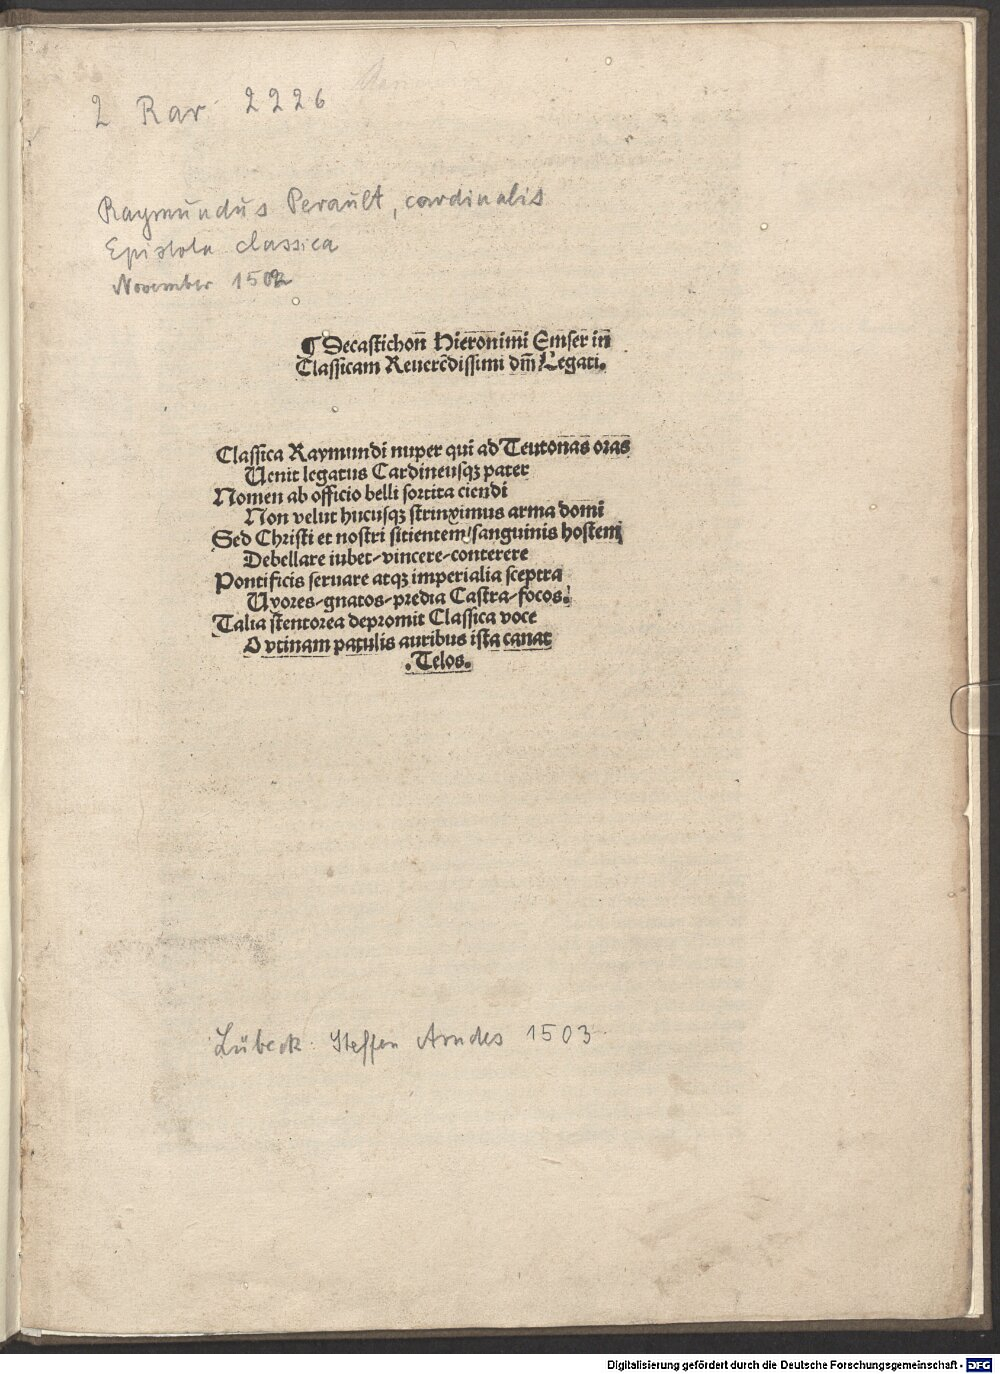 2 Rar 2226
Raymundus Perault, cardinalis
Epistola classica
November 1502
¶ Decastichon̄ Hieronimi Emser in̄
Classicam Reuerēdissimi dm̄ Legati.
Classica Raymundi nuper qui ad Teutonas oras
Uenit legatus Cardineusqꝫ pater
Nomen ab officio belli sortita ciendi
Non velut hucusqꝫ strinximus arma domi
Sed Christi et nostri sitientem/sanguinis hostem
Debellare iubet-vincere-conterere
Pontificis seruare atqꝫ imperialia sceptra
Uxores-gnatos-predia Castra-focos.
Talia stentorea depromit Classica voce
O vtinam patulis auribus ista canat
.Telos.
Lübeck. Steffen Arndes 1503
Digitalisierung gefördert durch die Deutsche Forschungsgemeinschaft - DFG